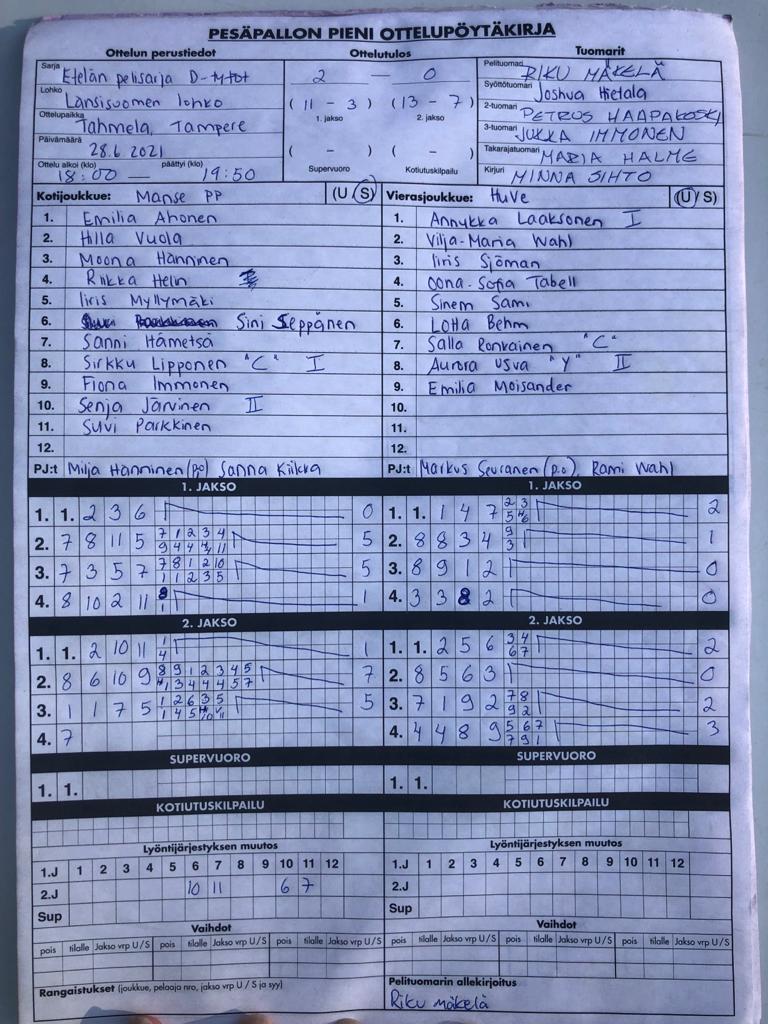 PESÄPALLON PIENI OTTELUPÖYTÄKIRJA
Ottelun perustiedot Ottelutulos Tuomarit
Sarja Etelän pelisarja D-tytöt
Lohko Länsisuomen lohko
Ottelupaikka Tahmela, Tampere
Päivämäärä 28.6 2021
Ottelu alkoi (klo) 18:00 — päättyi (klo) 19:50
2 — 0
( 11 - 3 ) ( 13 - 7 )
1. jakso 2. jakso
( - ) ( - )
Supervuoro Kotiutuskilpailu
Pelituomari RIKU MÄKELÄ
Syöttötuomari Joshua Hietala
2-tuomari PETRUS HAAPAKOSKI
3-tuomari JUKKA IMMONEN
Takarajatuomari MARIA HALME
Kirjuri MINNA SIHTO
Kotijoukkue: Manse PP (U/S)
1. Emilia Ahonen
2. Hilla Vuola
3. Moona Hänninen
4. Riikka Helin
5. Iiris Myllymäki
6. Sini Seppänen
7. Sanni Hämetsä
8. Sirkku Lipponen "C" I
9. Fiona Immonen
10. Senja Järvinen II
11. Suvi Parkkinen
12.
PJ:t Milja Hänninen (pj) Sanna Kiikka
Vierasjoukkue: HuVe (U/S)
1. Annukka Laaksonen I
2. Vilja-Maria Wahl
3. Iiris Sjöman
4. Oona-Sofia Tabell
5. Sinem Sami
6. Lotta Behm
7. Salla Ronkainen "C"
8. Aurora Usva "Y" II
9. Emilia Moisander
10.
11.
12.
PJ:t Markus Seuranen (p.o), Rami Wahl
1. JAKSO
1. 1. 2 3 6 0
2. 7 8 11 5 5
3. 7 3 5 7 5
4. 8 10 2 11 1
1. JAKSO
1. 1. 1 4 7 2
2. 8 8 3 4 1
3. 8 9 1 2 0
4. 3 3 8 2 0
2. JAKSO
1. 1. 2 10 11 1
2. 8 6 10 9 7
3. 1 1 7 5 5
4. 7
2. JAKSO
1. 1. 2 5 6 2
2. 8 5 6 3 0
3. 7 1 9 2 2
4. 4 4 8 9 3
SUPERVUORO SUPERVUORO
1. 1. 1. 1.
KOTIUTUSKILPAILU KOTIUTUSKILPAILU
Lyöntijärjestyksen muutos
1.J 1 2 3 4 5 6 7 8 9 10 11 12
2.J 10 11 6 7
Sup
Vaihdot
pois tilalle Jakso vrp U/S pois tilalle Jakso vrp U/S pois tilalle Jakso vrp U/S
Rangaistukset (joukkue, pelaaja nro, jakso vrp U / S ja syy)
Lyöntijärjestyksen muutos
1.J 1 2 3 4 5 6 7 8 9 10 11 12
2.J
Sup
Vaihdot
pois tilalle Jakso vrp U/S pois tilalle Jakso vrp U/S pois tilalle Jakso vrp U/S
Pelituomarin allekirjoitus
Riku mäkelä